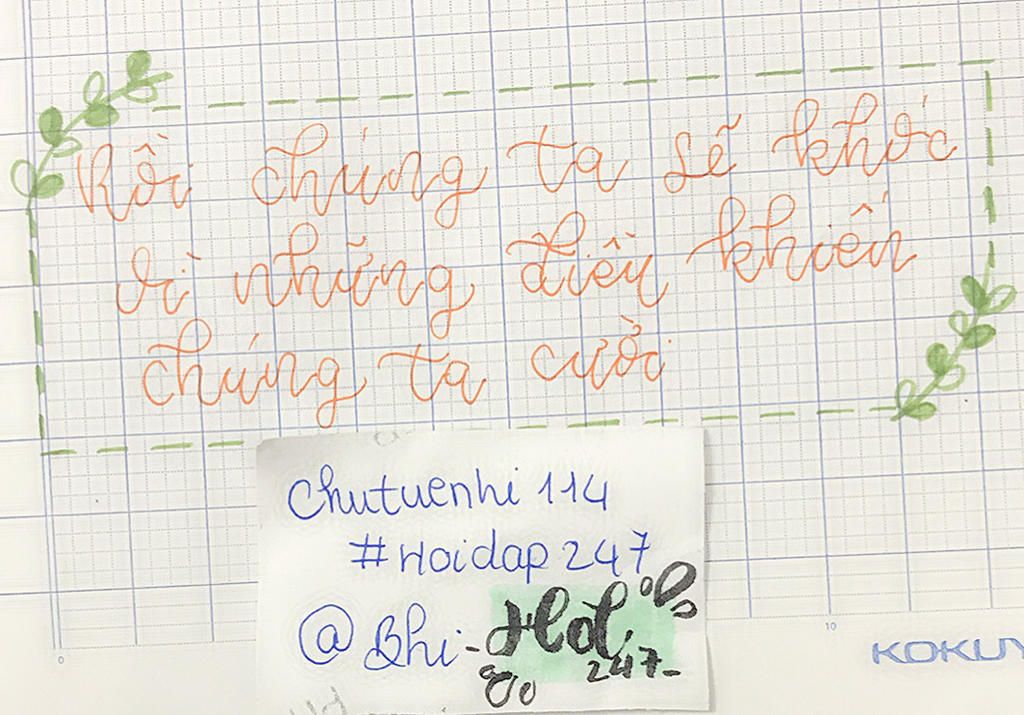 Rồi chúng ta sẽ khóc
vì những điều khiến
chúng ta cười
chutuenhi 114
#Hoidap247
@Bhi-
247-
0
10
KOKUY